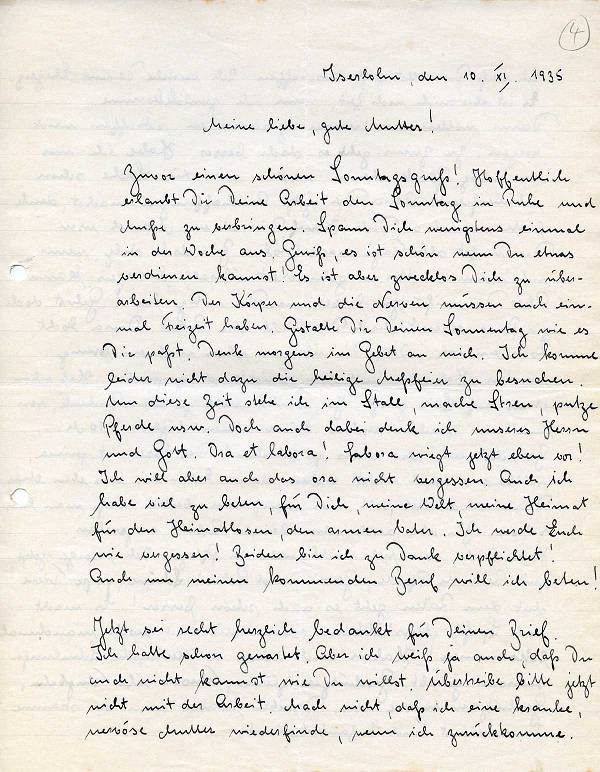 4
Iserlohn, den 10. XI. 1935
Meine liebe, gute Mutter!
Zuvor einen schönen Sonntagsgruß! Hoffentlich
erlaubt Dir Deine Arbeit den Sonntag in Ruhe und
Muße zu verbringen. Spann Dich wenigstens einmal
in der Woche aus. Gewiß, es ist schön wenn Du etwas
verdienen kannst! Es ist aber zwecklos Dich zu über-
arbeiten. Der Körper und die Nerven müssen auch ein-
mal Freizeit haben. Gestalte Dir Deinen Sonnentag wie es
Dir paßt. Denk morgens im Gebet an mich. Ich komme
leider nicht dazu die heilige Meßfeier zu besuchen.
Um diese Zeit stehe ich im Stall, mache Streu, putze
Pferde usw. Doch auch dabei denk ich unseres Herrn
und Gott. Ora et labora! Labora wiegt jetzt eben vor!
Ich will aber auch das ora nicht vergessen. Auch ich
habe viel zu beten, für Dich, meine Welt, meine Heimat
für den Heimatlosen, den armen Vater. Ich werde Euch
nie vergessen! Beiden bin ich zu Dank verpflichtet!
Auch um meinen kommenden Beruf will ich beten!
Jetzt sei recht herzlich bedankt für Deinen Brief.
Ich hatte schon gewartet. Aber ich weiß ja auch, daß Du
auch nicht kannst wie Du willst. Übertreibe bitte jetzt
nicht mit der Arbeit. Mach nicht, daß ich eine kranke,
nervöse Mutter wiederfinde, wenn ich zurückkomme.